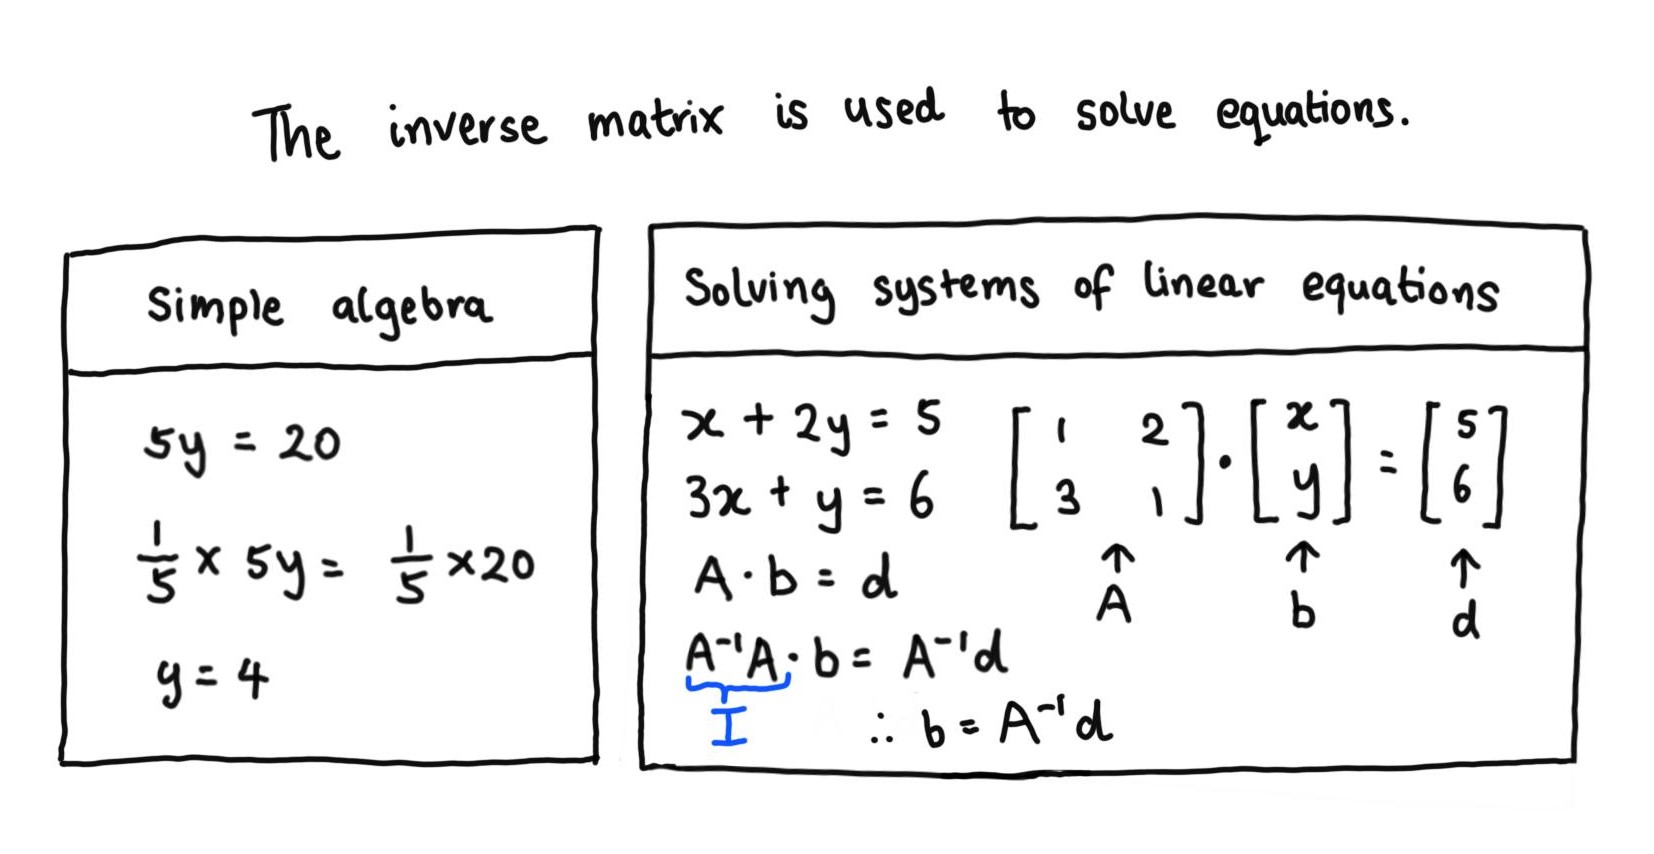 The inverse matrix is used to solve equations.
Simple algebra
5y = 20
1/5 × 5y = 1/5 × 20
y = 4
Solving systems of linear equations
x + 2y = 5
3x + y = 6
[1 2
3 1] · [x
y] = [5
6]
↑ ↑ ↑
A b d
A · b = d
A⁻¹A · b = A⁻¹d
I
∴ b = A⁻¹d